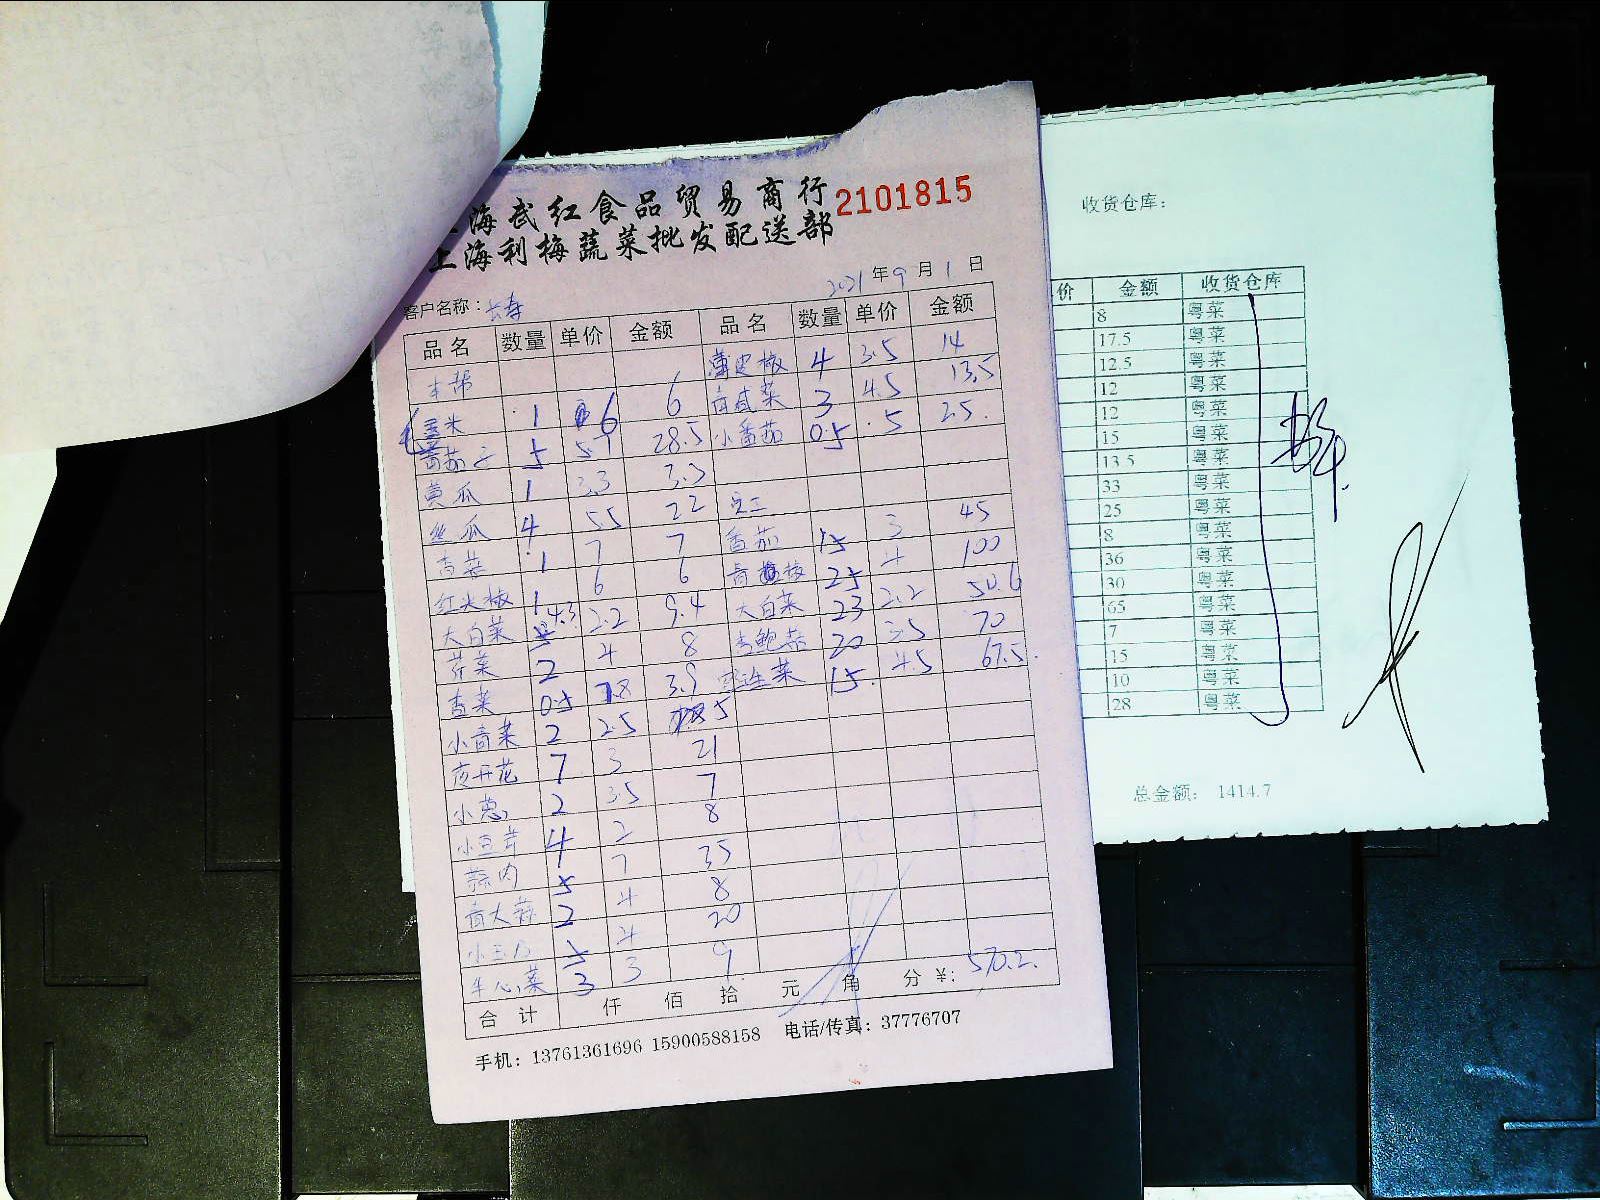 海武红食品贸易商行 2101815
上海利梅蔬菜批发配送部
2021年9月1日
客户名称：长寿
品名 数量 单价 金额 品名 数量 单价 金额
本帮 薄皮椒 4 3.5 14
1 6 6 3 4.5 13.5
番茄 5 5.7 28.5 小番茄 0.5 5 2.5
黄瓜 1 3.3 3.3
丝瓜 4 5.5 22
1 7 7 番茄 15 3 45
红尖椒 1 6 6 25 4 100
大白菜 4.3 2.2 9.4 大白菜 23 2.2 50.6
芹菜 2 4 8 20 3.5 70
香菜 0.5 7.8 3.9 菜 15 4.5 67.5
小青菜 2 2.5 5
7 3 21
小葱 2 3.5 7
小豆芽 4 2 8
蒜肉 5 7 35
青大蒜 2 4 8
5 4 20
牛心菜 3 3 9
合计 仟 佰 拾 元 角 分 ¥: 570.2
手机：13761361696 15900588158 电话/传真：37776707
收货仓库：
价 金额 收货仓库
8 粤菜
17.5 粤菜
12.5 粤菜
12 粤菜
12 粤菜
15 粤菜
13.5 粤菜
33 粤菜
25 粤菜
8 粤菜
36 粤菜
30 粤菜
65 粤菜
7 粤菜
15 粤菜
10 粤菜
28 粤菜
总金额： 1414.7